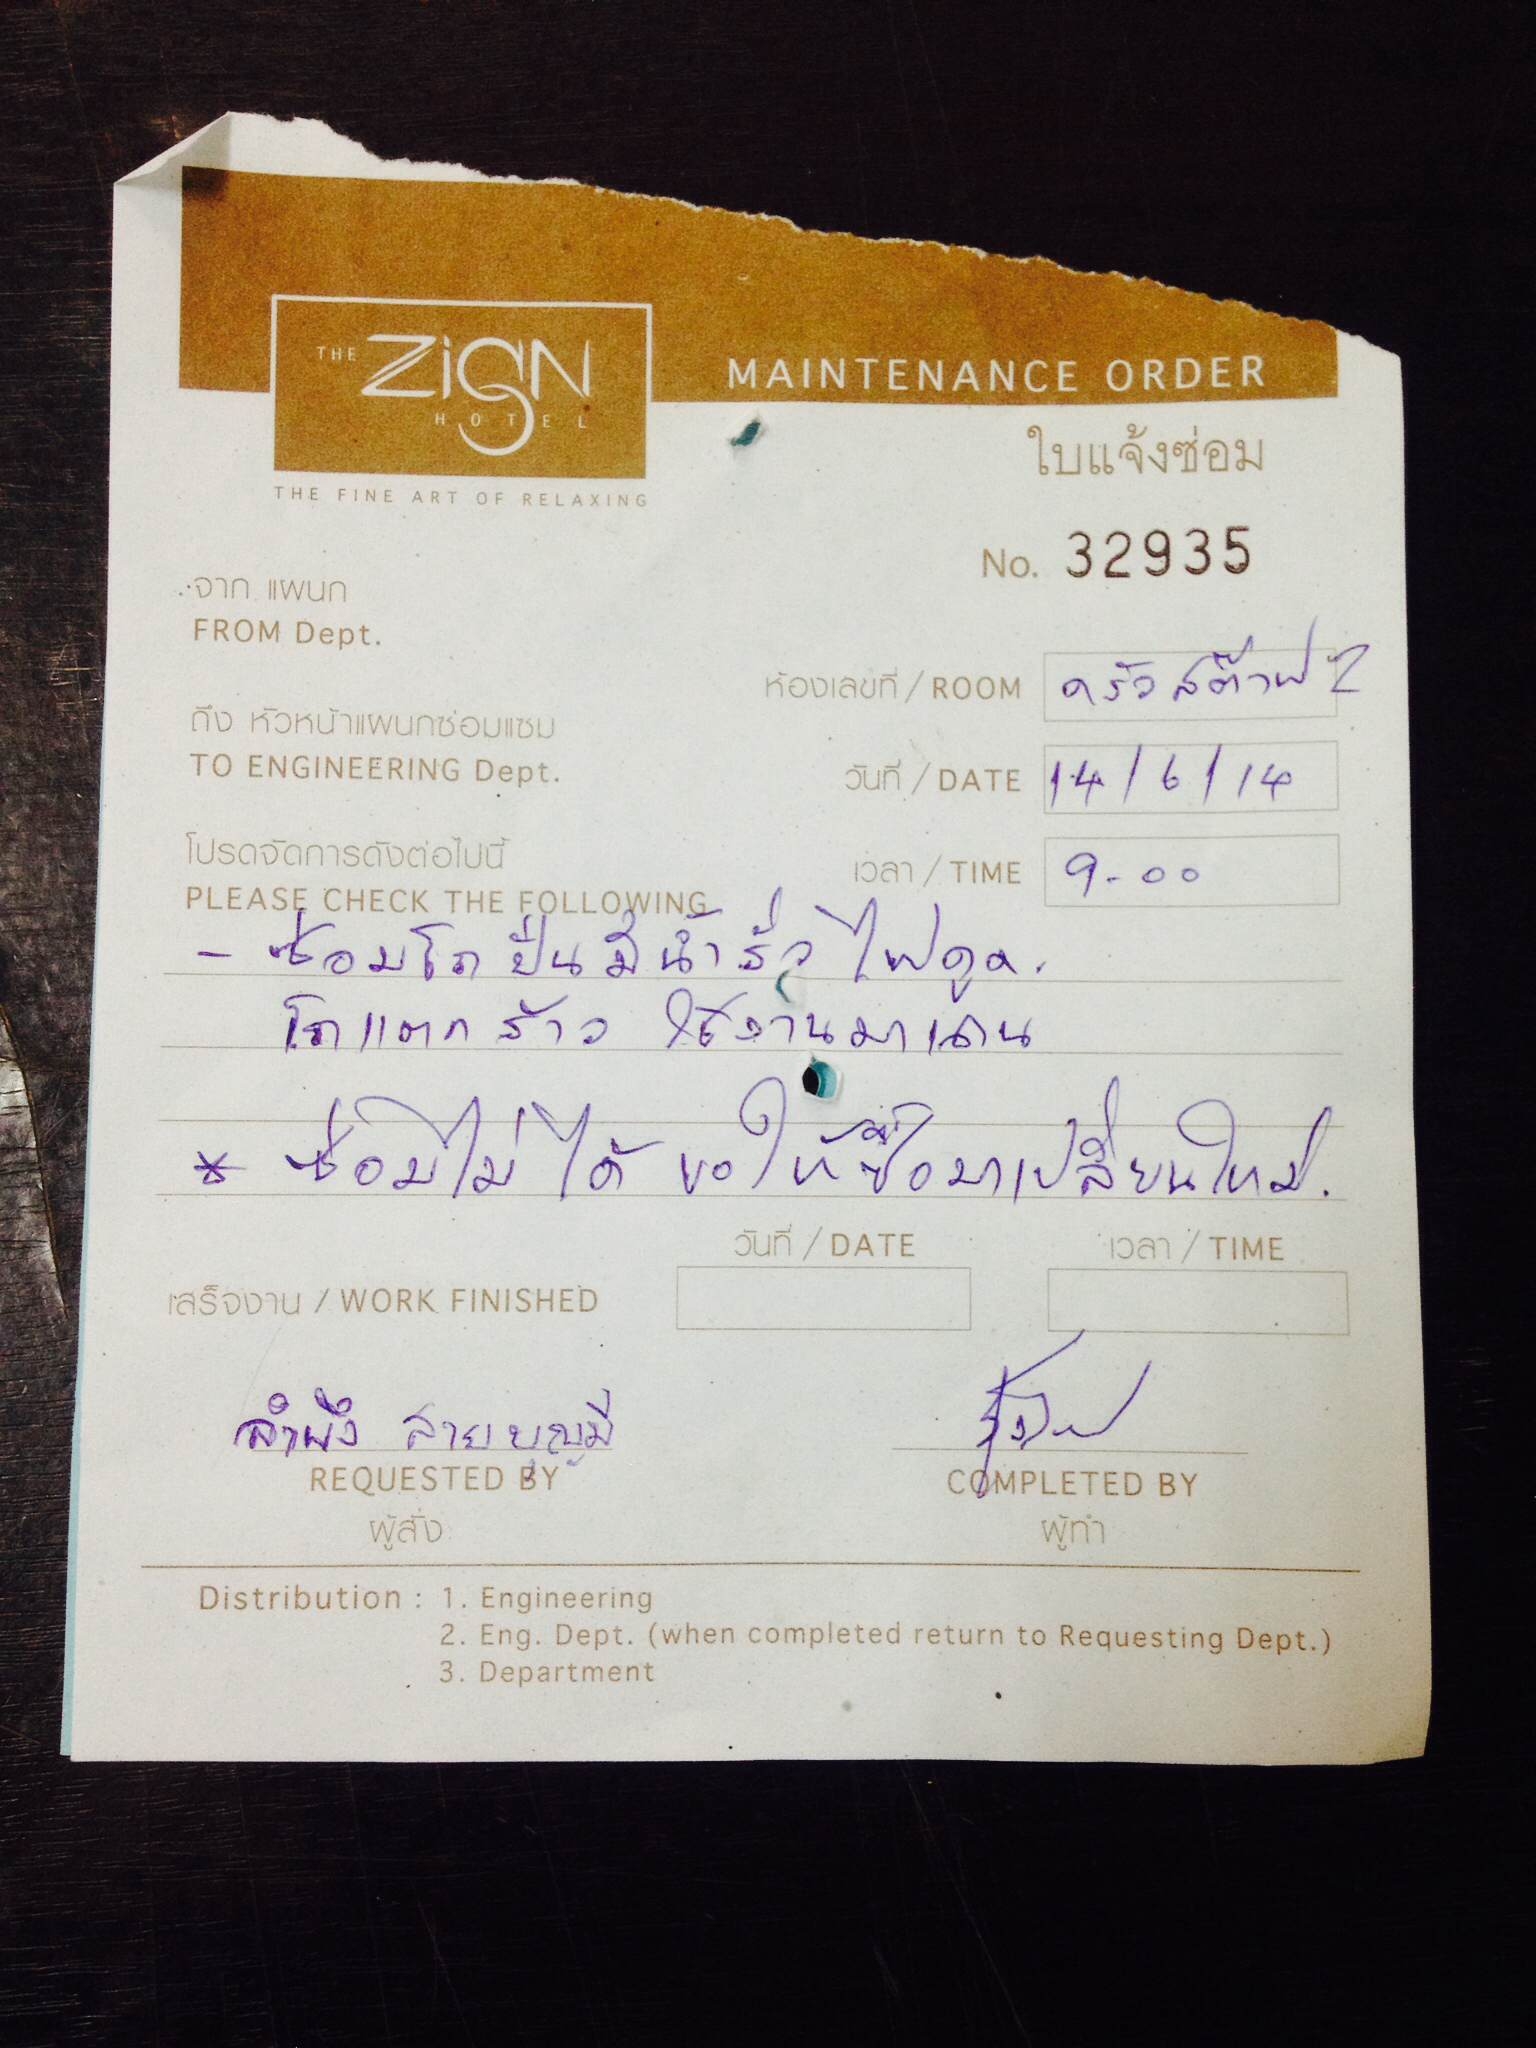 THE ZIGN
HOTEL
THE FINE ART OF RELAXING
MAINTENANCE ORDER
ใบแจ้งซ่อม
No. 32935
จาก แผนก
FROM Dept.
ห้องเลขที่ / ROOM ครัวสต๊าฟ 2
ถึง หัวหน้าแผนกซ่อมแซม
TO ENGINEERING Dept.
วันที่ / DATE 14/6/14
โปรดจัดการดังต่อไปนี้
เวลา / TIME 9-00
PLEASE CHECK THE FOLLOWING
- ซ่อมโถปั่นมีน้ำรั่ว ไฟดูด.
โถแตกร้าว ใช้งานมานาน
* ซ่อมไม่ได้ ขอให้ซื้อมาเปลี่ยนใหม่.
วันที่ / DATE เวลา / TIME
เสร็จงาน / WORK FINISHED
ลำพึง สายบุญมี
REQUESTED BY COMPLETED BY
ผู้สั่ง ผู้ทำ
Distribution : 1. Engineering
2. Eng. Dept. (when completed return to Requesting Dept.)
3. Department